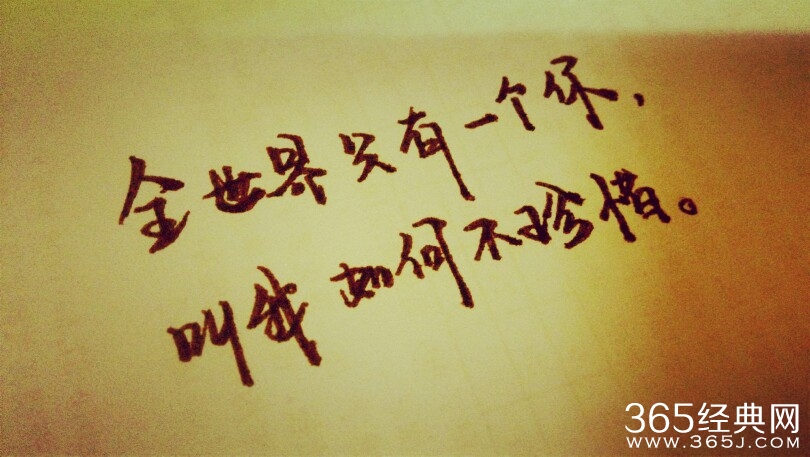 全世界只有一个你，
叫我如何不珍惜。
365经典网
www.365J.com